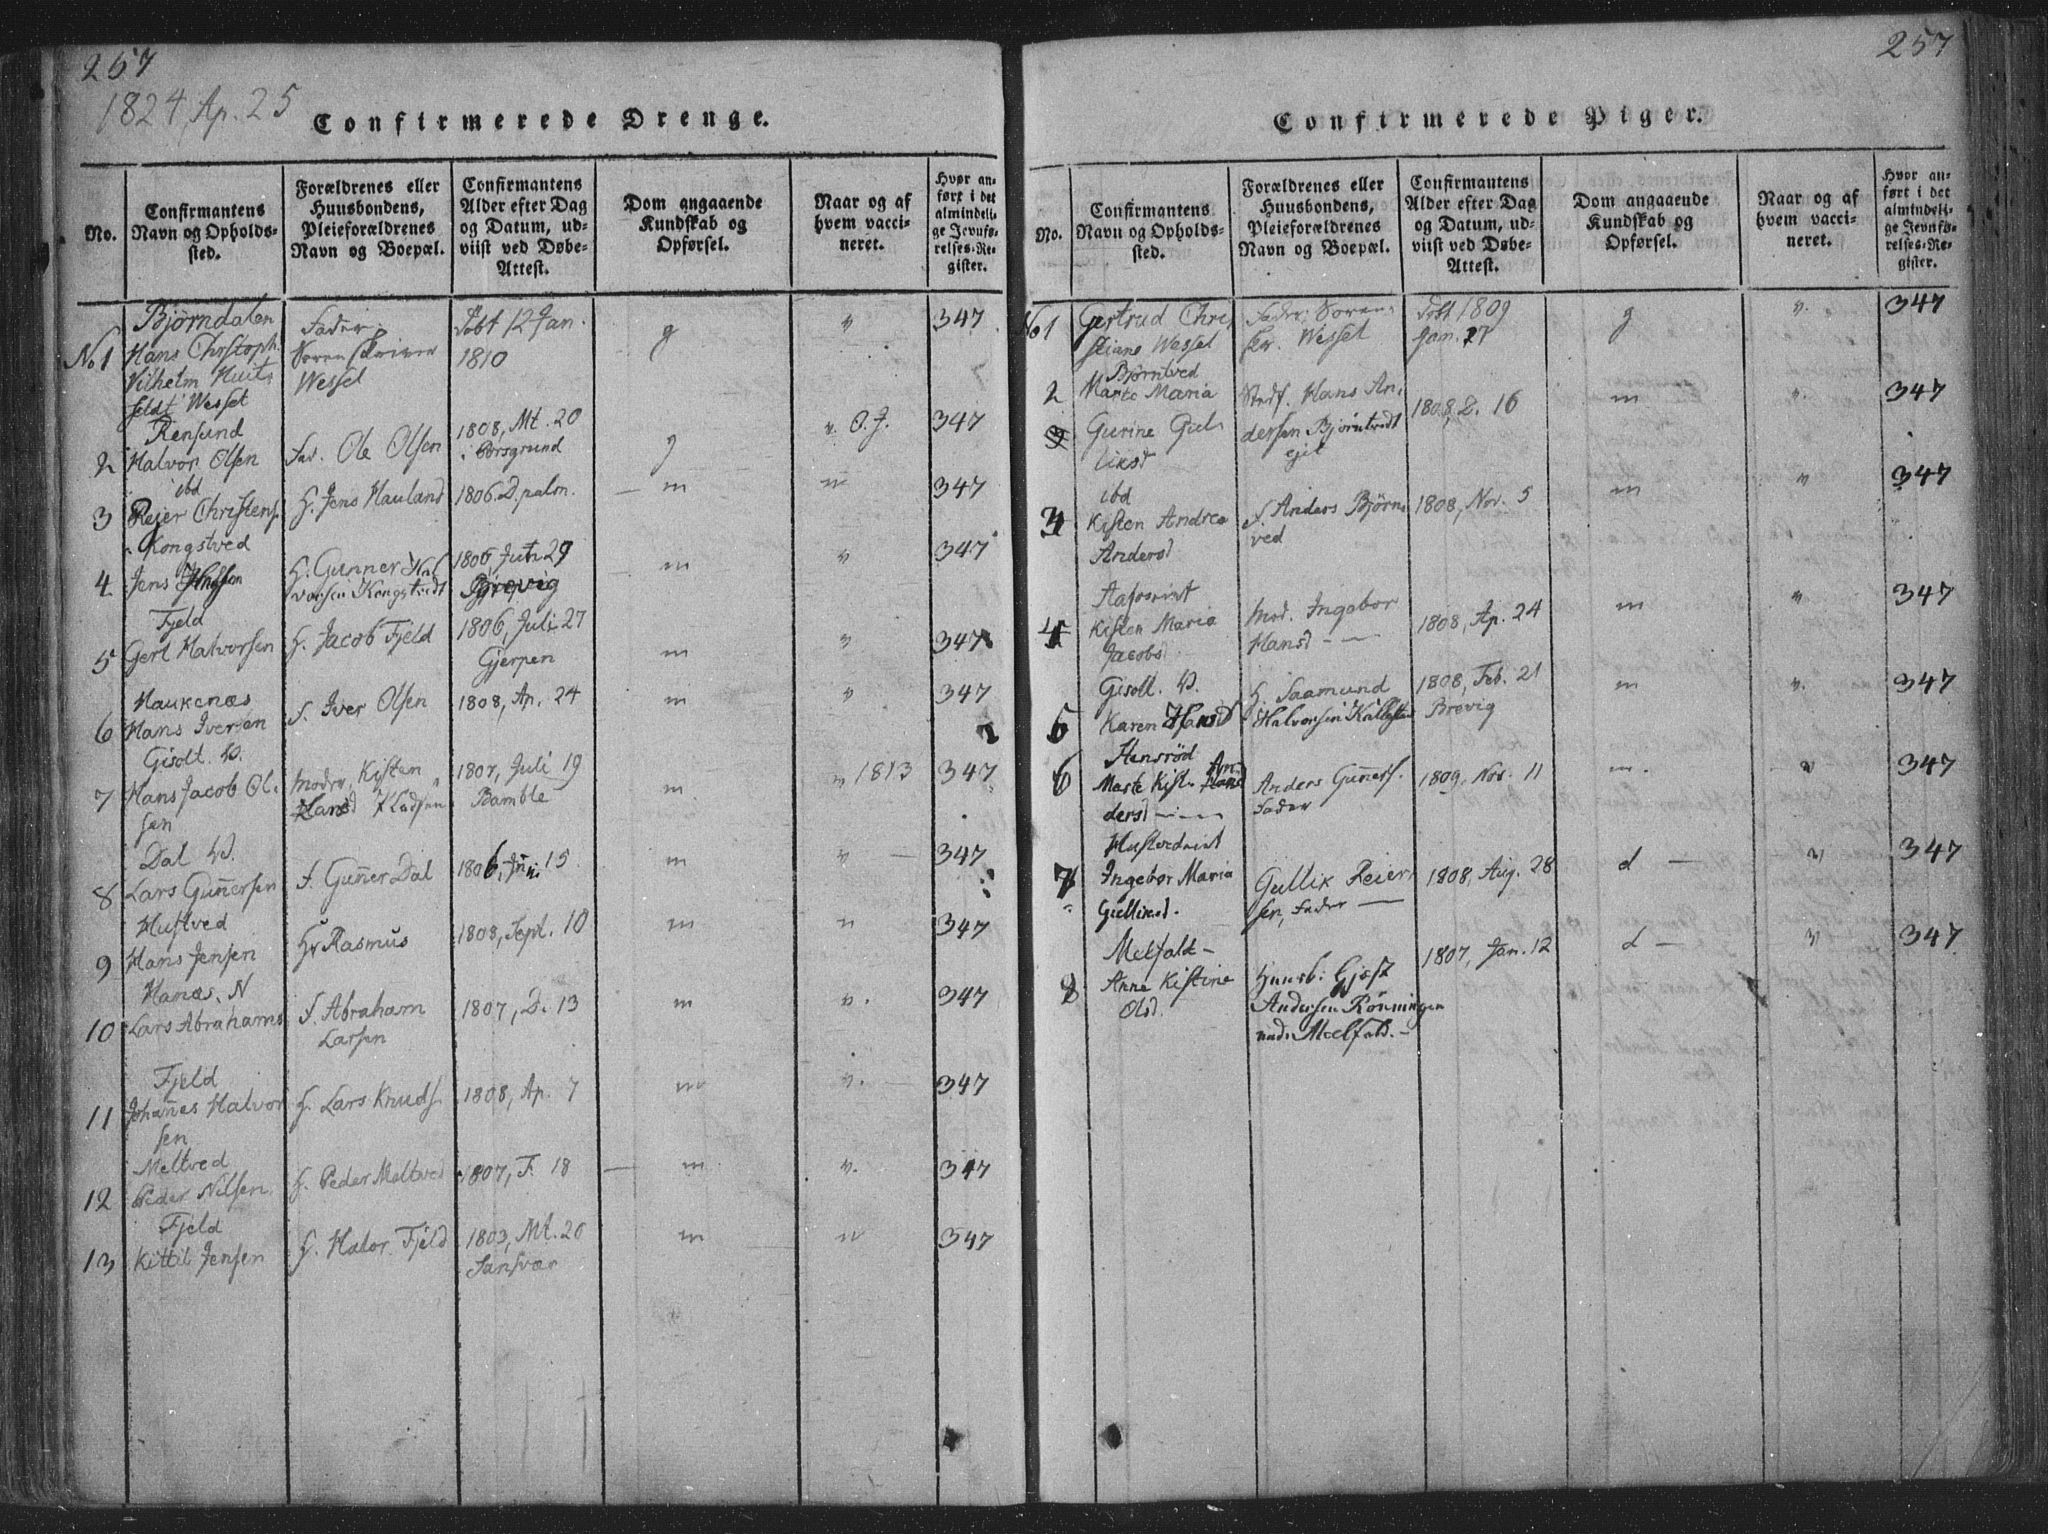 257
1824, Ap. 25
Confirmerede Drenge.
No.
Confirmantens Navn og Opholds-sted.
Forældrenes eller Huusbondens, Pleieforældrenes Navn og Boepæl.
Confirmantens Alder efter Dag og Datum, ud-viist ved Døbe-Attest.
Dom angaaende Kundskab og Opførsel.
Naar og af hvem vacci-neret.
Hvor an-ført i det almindeli-ge Jevnfø-relses-Re-gister.
Bjørndalen
No 1 Hans Christoph Vilhelm Huit-feldt Wessel
Fader Soren Wessel
Døbt 12 Jan. 1810
g
v
347
Rensund
2 Halvor Olsen
Fad. Ole Olsen
1808, Mt. 20 i Porsgrund
g
v. O. J.
347
ibd
3 Reier Christens.
H. Jens Hauland
1806. D. palm.
m
v
347
Kongstved
4 Jens
H. Gunner Hal vorsen Kongstvedt
1806, 29 Brevig
m
v
347
Fjeld
5 Gert Halvorsen
H. Jacob Fjeld
1806, Juli 27 Gjerpen
m
v
347
Haukenæs
6 Hans Iversen
F. Iver Olsen
1808, Ap. 24
m
v
347
Gisolt. W.
7 Hans Jacob Ol-sen
Moder, Kisten Hansd
1807, Juli 19 Bamble
m
v 1813
347
Dal W.
8 Lars Guñersen
F. Guñer Dal
1806, Juni 15
m
v
347
Hustved
9 Hans Jensen
Hr Rasmus
1808, Sept. 10
m
v
347
Hanæs. N
10 Lars Abrahams
F. Abraham Larsen
1807, D. 13
m
v.
347
Fjeld
11 Johañes Halvor sen
H. Lars Knuds.
1808, Ap. 7
m
v.
347
Meltved
12 Peder Nilsen
H. Peder Meltved
1807, F. 18
m
v.
347
Fjeld
13 Kittil Jensen
H. Halor Fjeld
1803, Mt. 20 Sansvær
m
v
347
257
Confirmerede Piger.
No.
Confirmantens Navn og Opholds-sted.
Forældrenes eller Huusbondens, Pleieforældrenes Navn og Boepæl.
Confirmantens Alder efter Dag og Datum, ud-viist ved Døbe-Attest.
Dom angaaende Kundskab og Opførsel.
Naar og af hvem vacci-neret.
Hvor an-ført i det almindeli-ge Jevnfø-relses-Re-gister.
No 1 Gertrud Chri stiane Wessel
Fader, Soren Wessel
Døbt 1809 Jan. 27
g
v.
347
Bjørntved
2 Marte Maria Gurine Gul liksd
Stedf. Hans An-dersen Bjørntvedt
1808, D. 16
m
v.
347
ibd
3 Kisten Andrea Andersd
F. Anders Bjørn ved
1808, Nov. 5
m
v
347
4 Kisten Maria Jacobsd
Mod. Ingebor Hansd
1808, Ap. 24
m
v
347
Gisolt. W.
5 Karen Hansd
H. Saamund Halvorsen
1808, Feb. 21 Brevig
m
v.
347
Stensrød
6 Marte Kist. An dersd
Anders Guñers. Fader
1809, Nov. 11
m.
v
347
7 Ingebor Maria Gulliksd.
Gullik Reier sen, Fader
1808, Aug. 28
d
v
347
Melfald
8 Anne Kistine Olsd.
Huusb: Gjest Andersen Rönningen Meelfald.
1807, Jan. 12
d
v
347